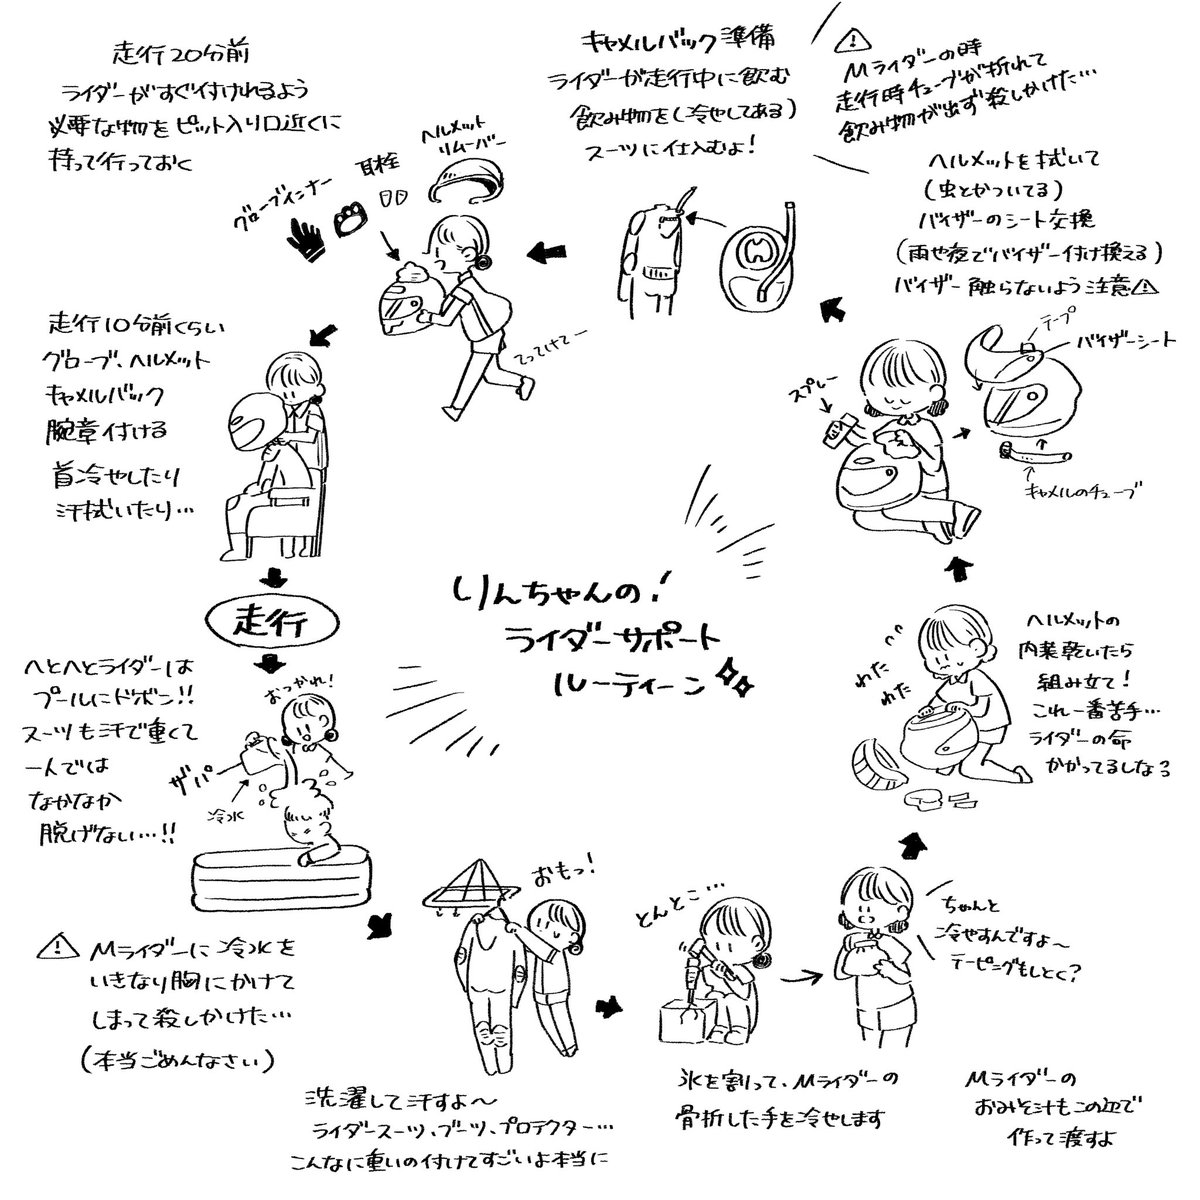 りんちゃんの!
ライダーサポート
ルーティーン
走行20分前
ライダーがすぐ付けれるよう
必要な物をピット入り口近くに
持って行っておく
グローブインナー
耳栓
ヘルメット
リムーバー
てってけてー
キャメルバック準備
ライダーが走行中に飲む
飲み物を(冷やしてある)
スーツに仕込むよ!
Mライダーの時
走行時チューブが折れて
飲み物が出ず殺しかけた…
ヘルメットを拭いて
(虫とかついてる)
バイザーのシート交換
(雨や夜でバイザー付け換える)
バイザー触らないよう注意
スプレー
テープ
バイザーシート
キャメルのチューブ
走行10分前くらい
グローブ、ヘルメット
キャメルバック
腕章付ける
首冷やしたり
汗拭いたり…
走行
へとへとライダーは
プールにドボン!!
スーツも汗で重くて
一人では
なかなか
脱げない…!!
おつかれ!
ザバ
冷水
Mライダーに冷水を
いきなり胸にかけて
しまって殺しかけた…
(本当ごめんなさい)
おもっ!
洗濯して汗すよ〜
ライダースーツ、ブーツ、プロテクター…
こんなに重いの付けてすごいよ本当に
とんとこ…
氷を割って、Mライダーの
骨折した手を冷やします
ちゃんと
冷やすんですよ〜
テーピングもしとく?
Mライダーの
おみそ汁もこの辺で
作って渡すよ
わた
わた
ヘルメットの
内装乾いたら
組み立て!
これ一番苦手…
ライダーの命
かかってるしなる